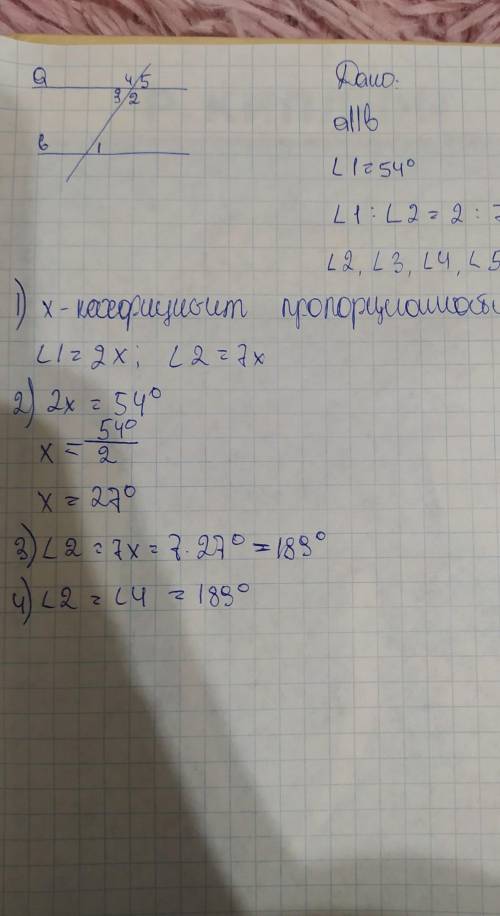 a 4 5
3 2
в 1
Дано:
a||в
∠1=54°
∠1 : ∠2 = 2 : 7
∠2, ∠3, ∠4, ∠5
1) x - коэфициент пропорциональности
∠1 = 2x; ∠2 = 7x
2) 2x = 54°
x = 54°/2
x = 27°
3) ∠2 = 7x = 7·27° = 189°
4) ∠2 = ∠4 = 189°